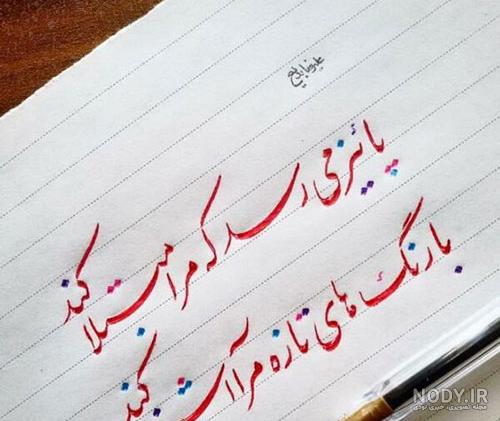 پائیز می رسد که مرا مبتلا کند
با رنگ های تازه مرا آشنا کند
NODY.IR